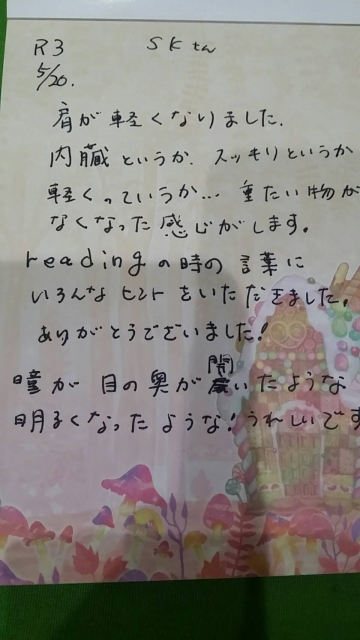 R3 SKさん
5/20.
肩が軽くなりました.
内臓というか.スッキリというか
軽くっていうか…重たい物が
なくなった感じがします。
readingの時の言葉に
いろんなヒントをいただきました。
ありがとうございました!
瞳が目の奥が開いたような
明るくなったような!うれしいです